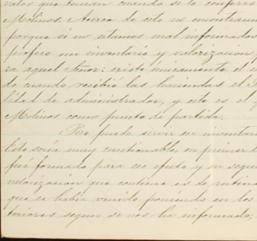 valor que tenian cuando se le confirió
Molinos. Acerca de esto no encontramos
porque si no estamos mal informados
profeso un inventario y valorizacion,
ra aquel Señor: existe únicamente el
do cuando recibió las haciendas el S
lidad de administrador, y este es el
Molinos como punto de partida.
Pero puede servir ese inventario
Esto seria muy cuestionable, en primer l
fué formado para ese efecto y en segu
valorizacion que contiene es de rutina
que se habia venido poniendo en los
teriores segun se nos ha informado;